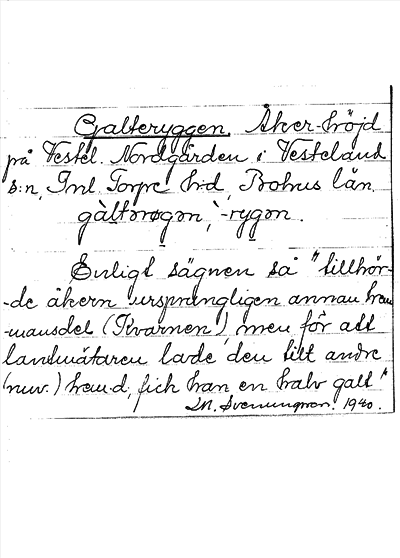 Galteryggen. Åker-höjd
på Vestel. Nordgården i Vesteland
s:n, Inl. Torpe h-d, Bohus län.
gàltərøgən, -rygən.
Enligt sägnen så "tillhör-
-de åkern ursprungligen annan hem
-mansdel (Kvarnen), men för att
landmätaren lade den till andre
(nuv.) hemd, fick han en halv galt"
M. Svenungsson. 1940.